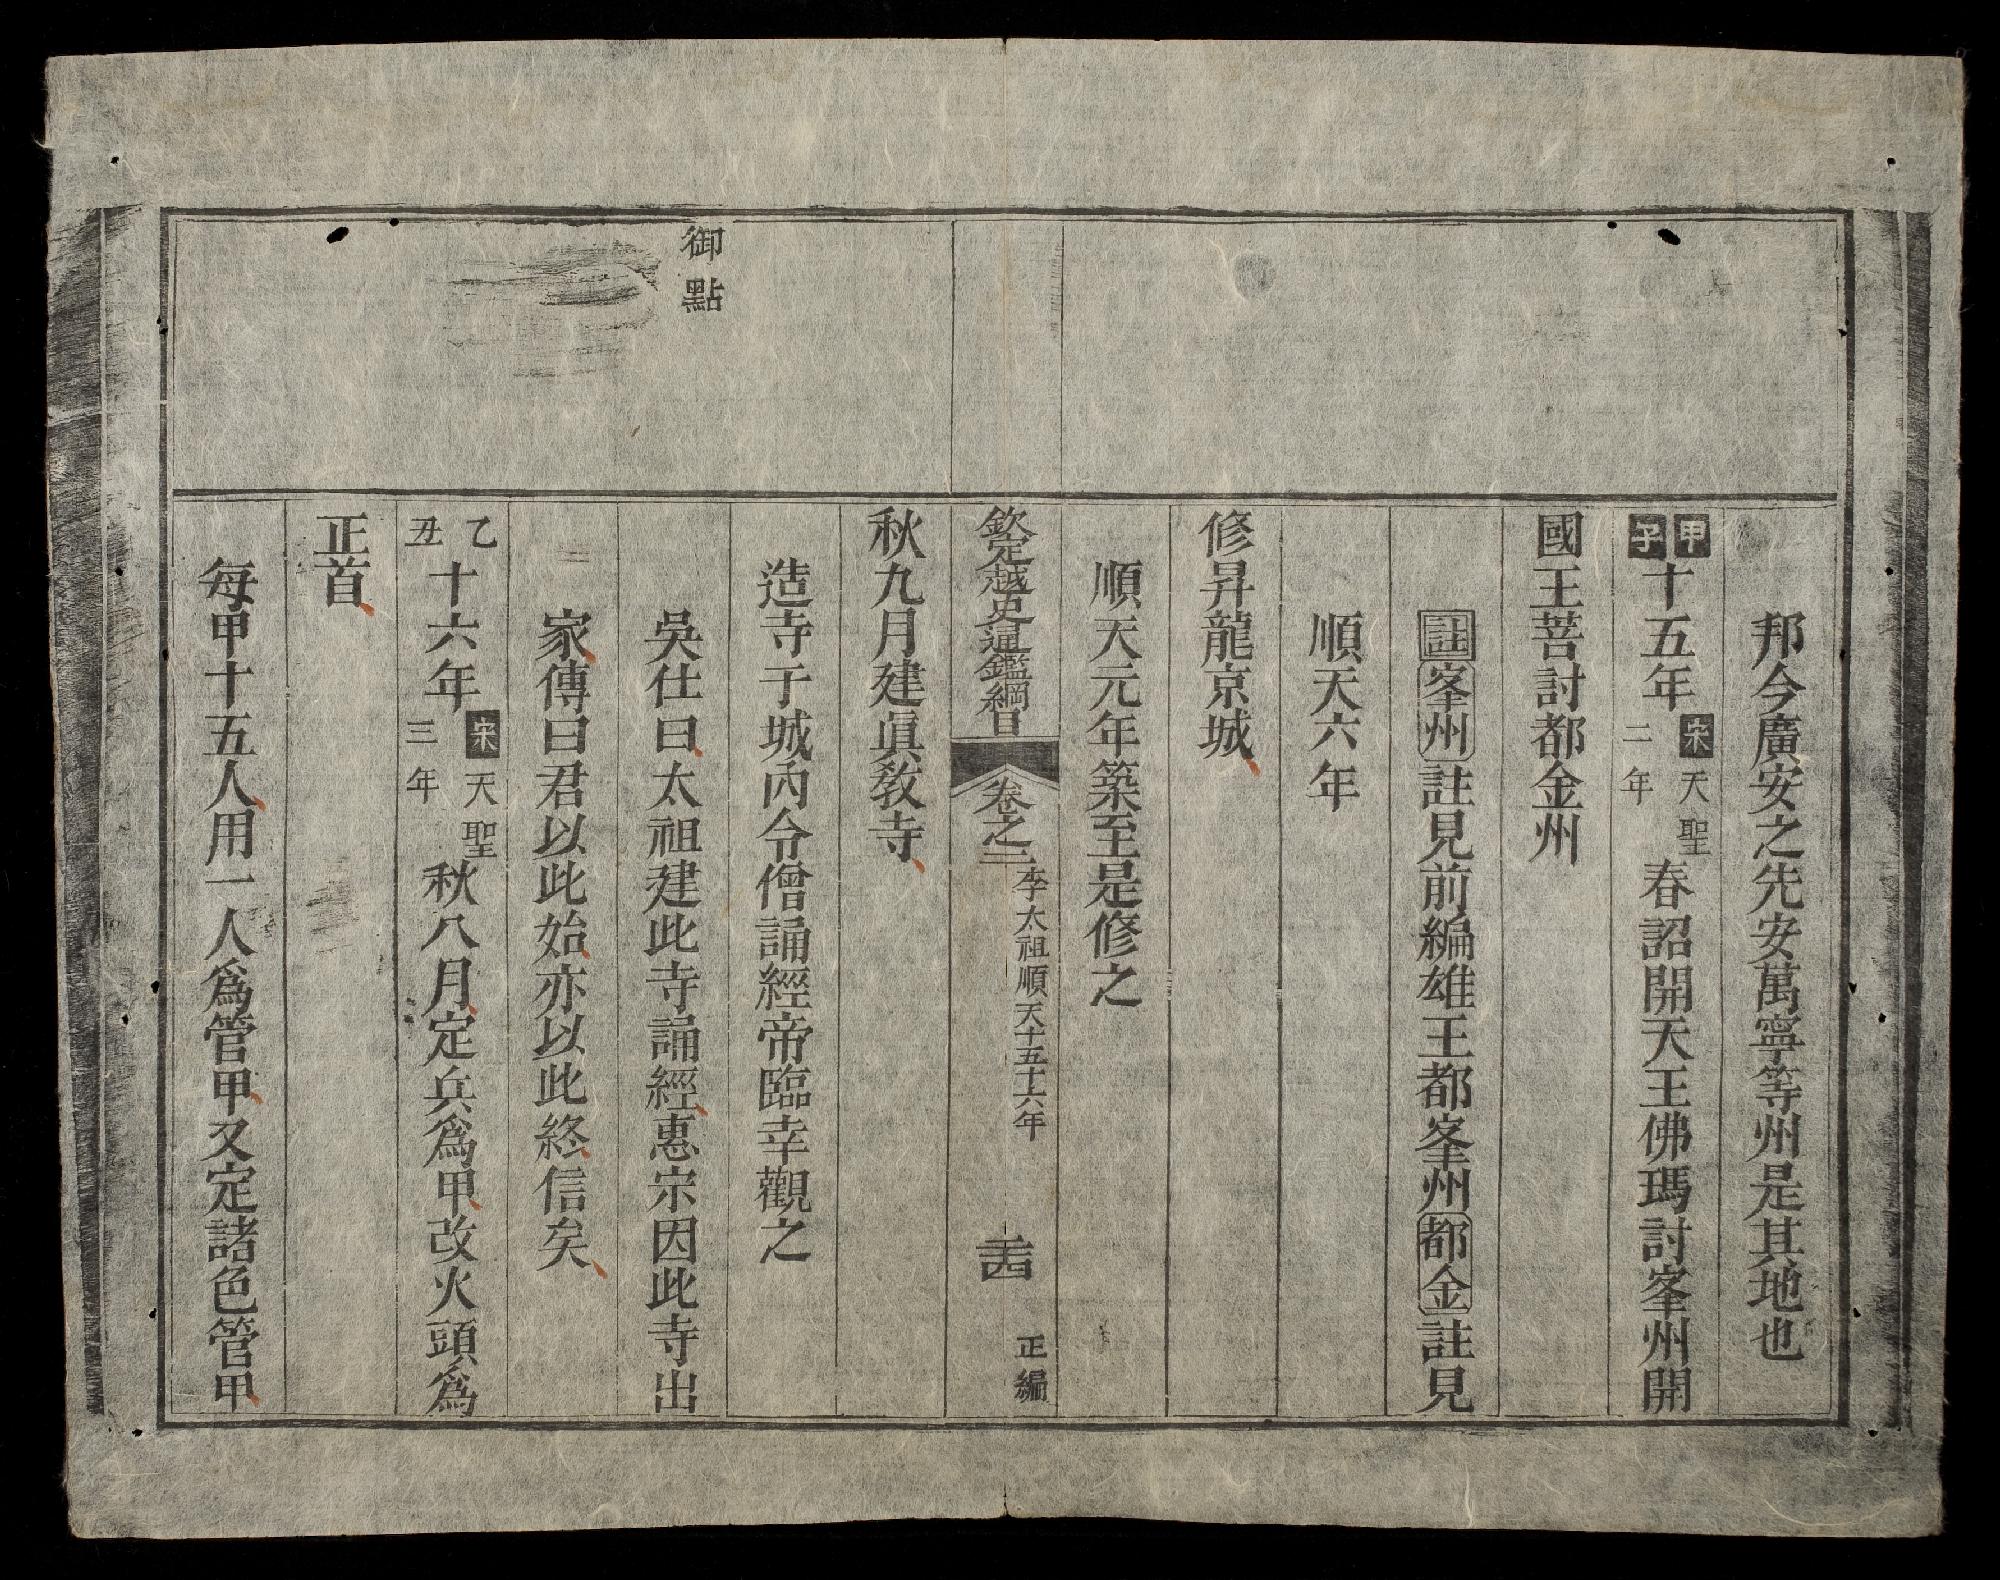 邦今廣安之先安萬寧等州是其地也
甲子十五年宋天聖二年春詔開天王佛瑪討峯州開
國王菩討都金州
註峯州註見前編雄王都峯州都金註見
順天六年
修昇龍京城
順天元年築至是修之
欽定越史通鑑綱目 卷之二 李太祖順天十五十六年 十四 正編
秋九月建眞教寺
造寺于城內令僧誦經帝臨幸觀之
御點
吳仕曰太祖建此寺誦經惠宗因此寺出
家傳曰君以此始亦以此終信矣
乙丑十六年宋天聖三年秋八月定兵爲甲改火頭爲
正首
每甲十五人用一人爲管甲又定諸色管甲